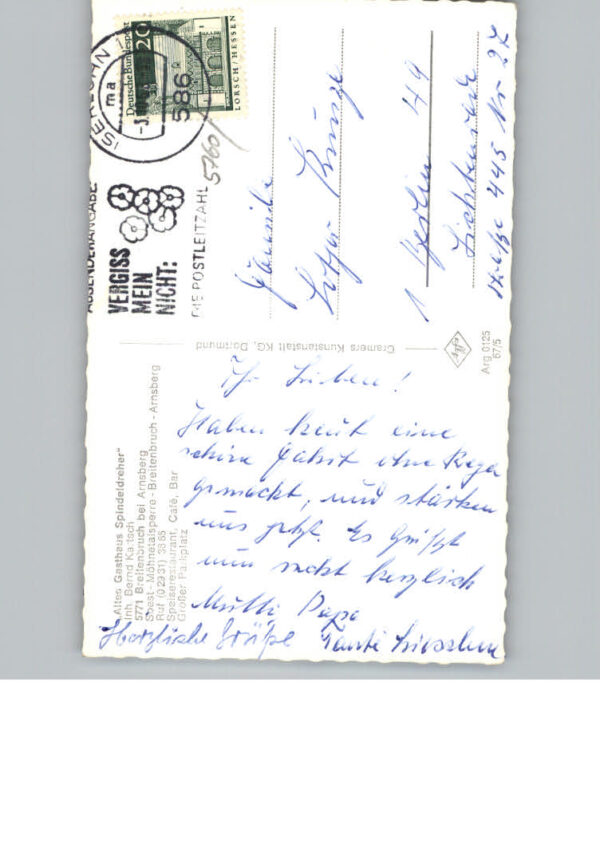 „Altes Gasthaus Spindeldreher"
Inh. Bernd Kaitsch
5771 Breitenbruch bei Arnsberg
Soest-Möhnetalsperre-Breitenbruch-Arnsberg
Ruf (02931) 3885
Speiserestaurant, Café, Bar
Großer Parkplatz
Ihr Lieben!
Haben heut eine
schöne Fahrt ohne Regen
gemacht, und stärken
uns jetzt. Es grüßt
nun recht herzlich
Mutti Papa
Herzliche Grüße Tante Lieschen
Cramers Kunstanstalt KG, Dortmund
Arg 0125
67/5
ABSENDERANGABE
VERGISS
MEIN
NICHT:
DIE POSTLEITZAHL
ISERLOHN 1
ma
586
5760
Deutsche Bundespost
20
LORSCH/HESSEN
Familie
Lothar
1 Berlin 49
Lichtenrade
Straße 445 Nr 27